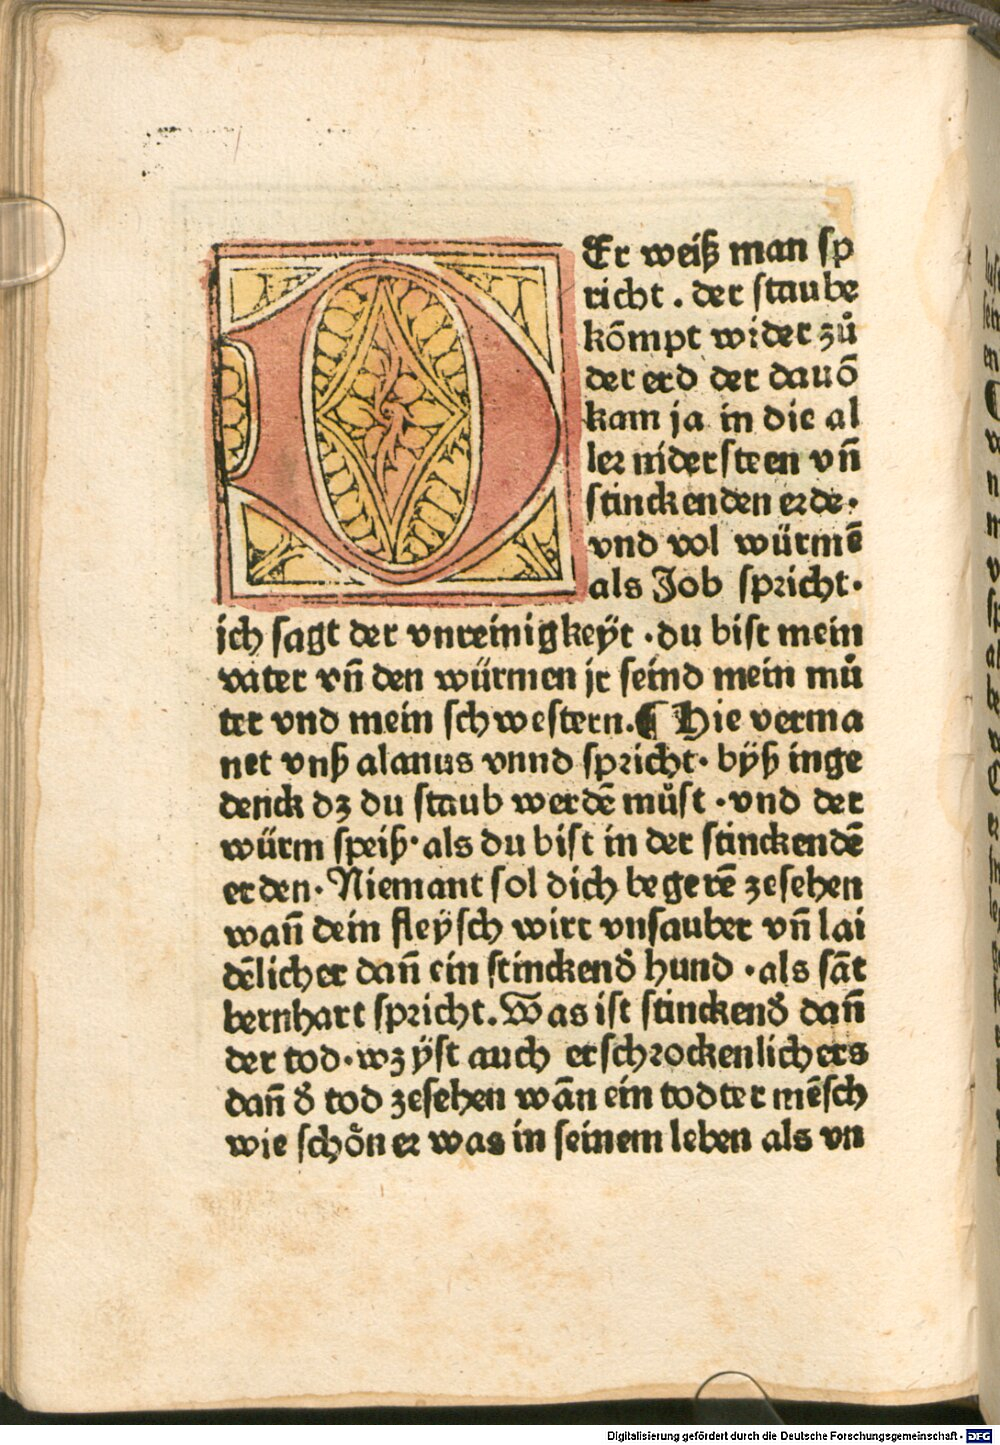 DEr weiß man sp
richt . der staube
kõmpt wider zů
der erd der dauõ
kam ja in die al
ler nidersteen vñ
stinckenden erde·
vnd vol würmẽ
als Job spricht·
ich sagt der vnreinigkeÿt ·du bist mein
vater vñ den würmen jr seind mein mů
ter vnd mein schwestern.¶ Hie verma
net vnß alanus vnnd spricht· bÿß inge
denck dz du staub werdẽ můst ·vnd der
würm speiß·als du bist in der stinckendẽ
erden· Niemant sol dich begerẽ zesehen
wañ dein fleÿsch wirt vnsauber vñ lai
dẽlicher dañ ein stinckend᷑ hund ·als sãt
bernhart spricht. Was ist stinckend᷑ dañ
der tod·wz ÿst auch erschrockenlichers
dañ d᷑ tod zesehen wãn ein todter mẽsch
wie schöner was in seinem leben als vn
Digitalisierung gefördert durch die Deutsche Forschungsgemeinschaft · DFG